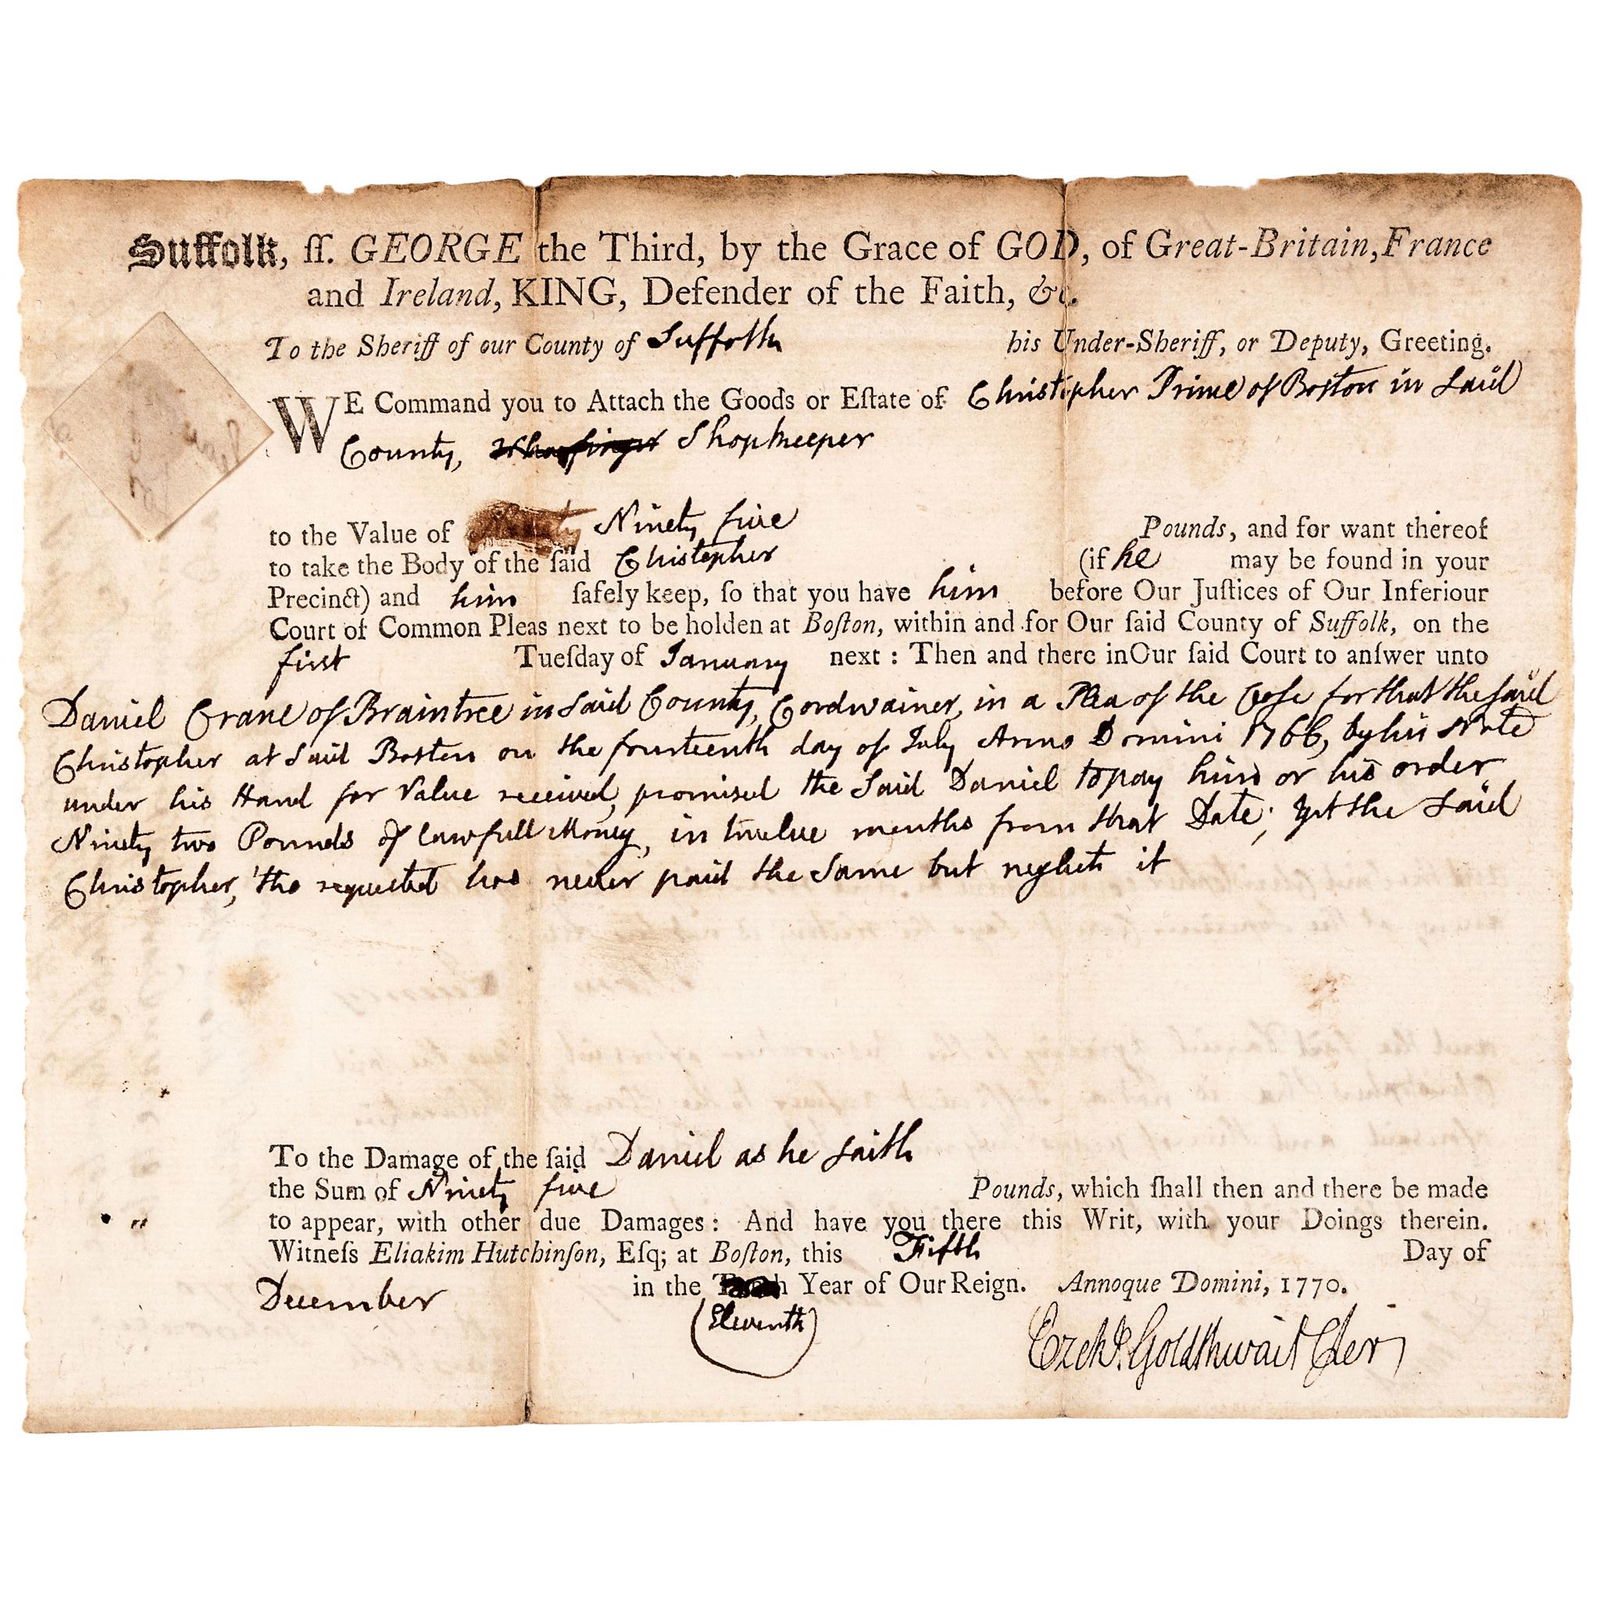 Suffolk, ſſ. GEORGE the Third, by the Grace of GOD, of Great-Britain, France
and Ireland, KING, Defender of the Faith, &c.
To the Sheriff of our County of Suffolk his Under-Sheriff, or Deputy, Greeting.
WE Command you to Attach the Goods or Eſtate of Christopher Prime of Boston in Said
County, Wharfinger Shopkeeper
to the Value of Ninety five Pounds, and for want thereof
to take the Body of the ſaid Christopher (if he may be found in your
Precinct) and him ſafely keep, ſo that you have him before Our Juſtices of Our Inferiour
Court of Common Pleas next to be holden at Boſton, within and for Our ſaid County of Suffolk, on the
first Tueſday of January next : Then and there in Our ſaid Court to anſwer unto
Daniel Crane of Braintree in Said County, Cordwainer, in a Plea of the Case for that the said
Christopher at Said Boston on the fourteenth day of July Anno Domini 1766, by his Note
under his Hand for Value received, promised the Said Daniel to pay him or his order
Ninety two Pounds of lawfull Money, in twelve months from that Date; yet the Said
Christopher, tho requested has never paid the Same but neglects it
To the Damage of the ſaid Daniel as he saith
the Sum of Ninety five Pounds, which ſhall then and there be made
to appear, with other due Damages : And have you there this Writ, with your Doings therein.
Witneſs Eliakim Hutchinſon, Eſq; at Boſton, this Fifth Day of
December in the Tenth Year of Our Reign. Annoque Domini, 1770.
(Eleventh)
Ezekl. Goldthwait Cler